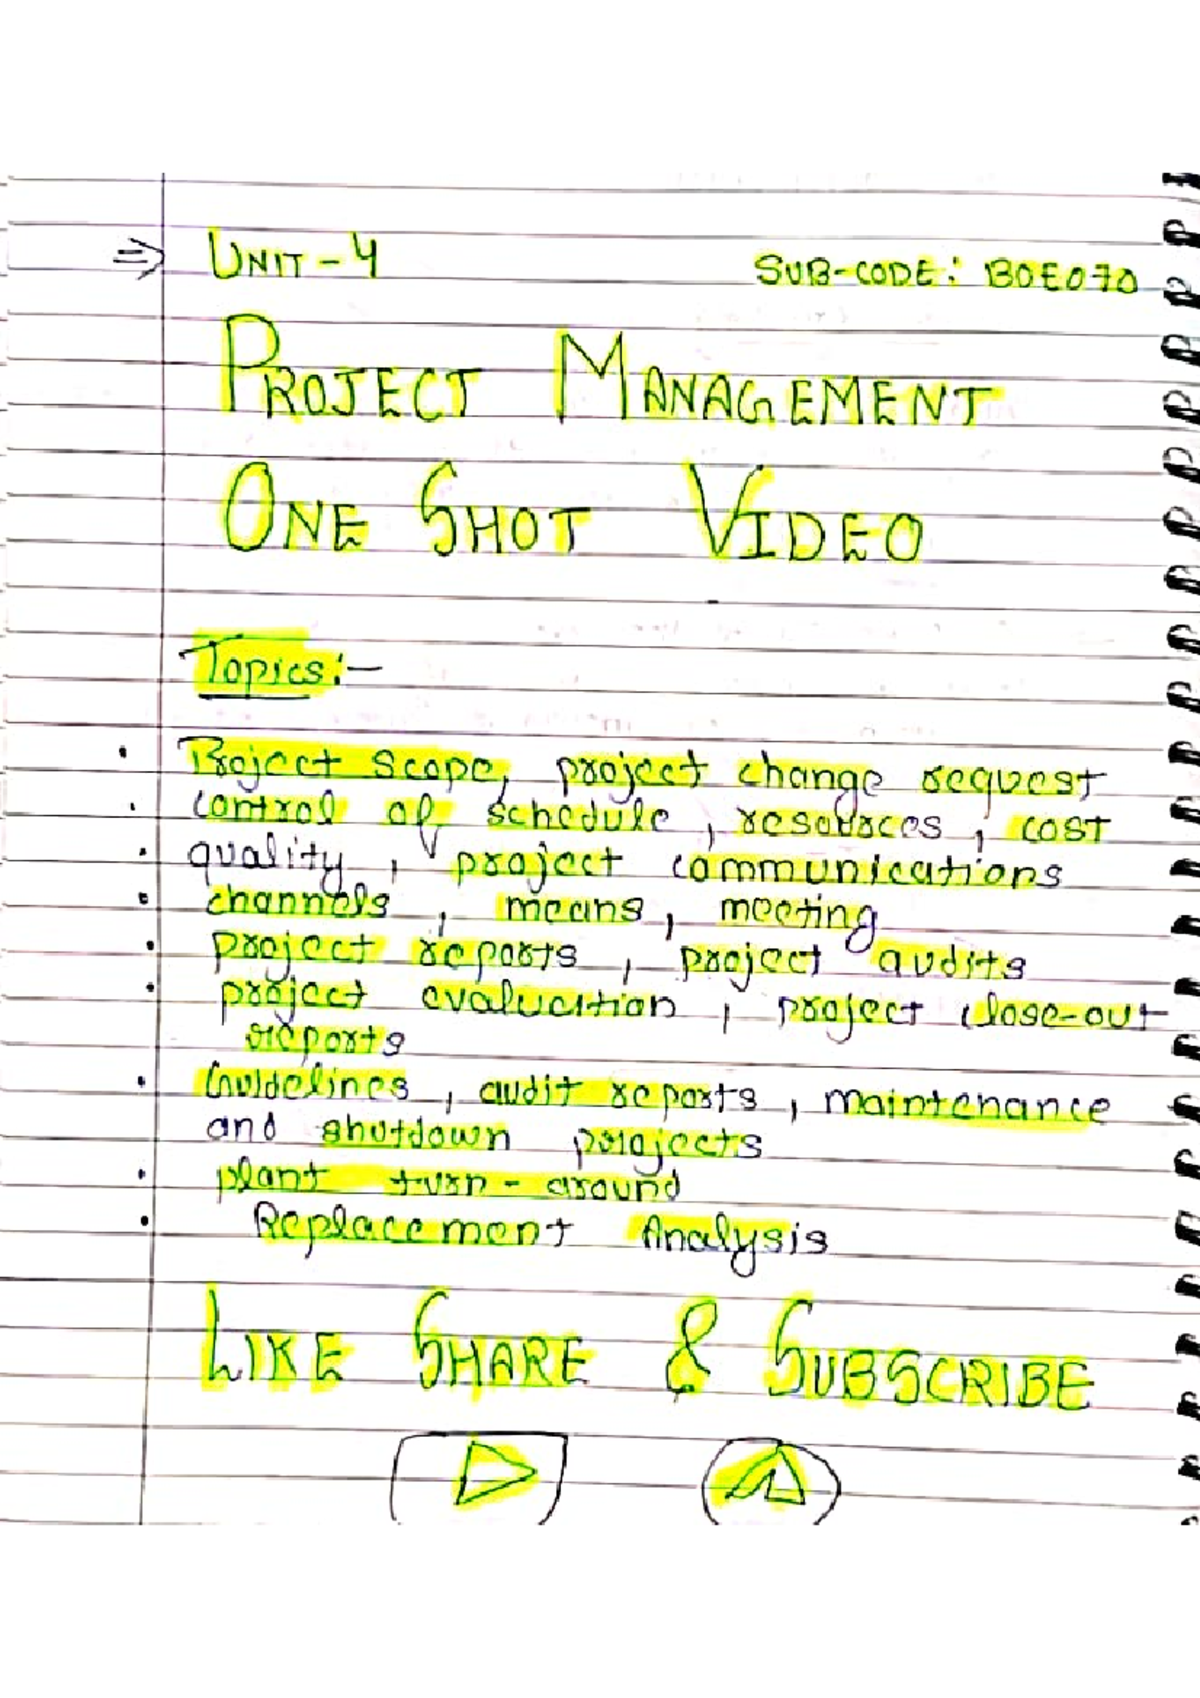 ⇒ UNIT-4 SUB-CODE: BOE070
PROJECT MANAGEMENT
ONE SHOT VIDEO
Topics:-
• Project scope, project change request
• control of schedule, resources, cost
• quality, project communications
• channels, means, meeting
• project reports, project audits
• project evaluation, project close-out
reports
• Guidelines, audit reports, maintenance
and shutdown projects
• plant turn-around
• Replacement Analysis
LIKE SHARE & SUBSCRIBE